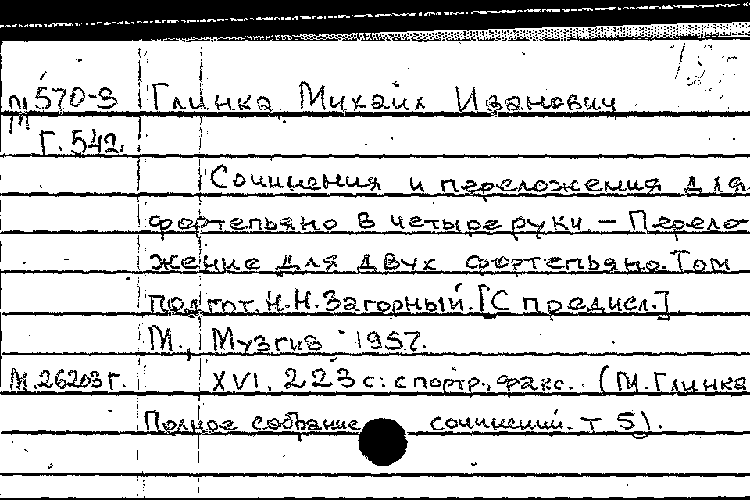 М 570-3 Глинка, Михаил Иванович
Г. 542.
Сочинения и переложения для
фортепьяно в четыре руки. – Перело-
жение для двух фортепьяно. Том
подгот. Н.Н. Загорный. [С предисл.]
М., Музгиз 1957.
М.26203г. XVI, 223 с: с портр., факс. (М.Глинка
Полное собрание сочинений. т 5).